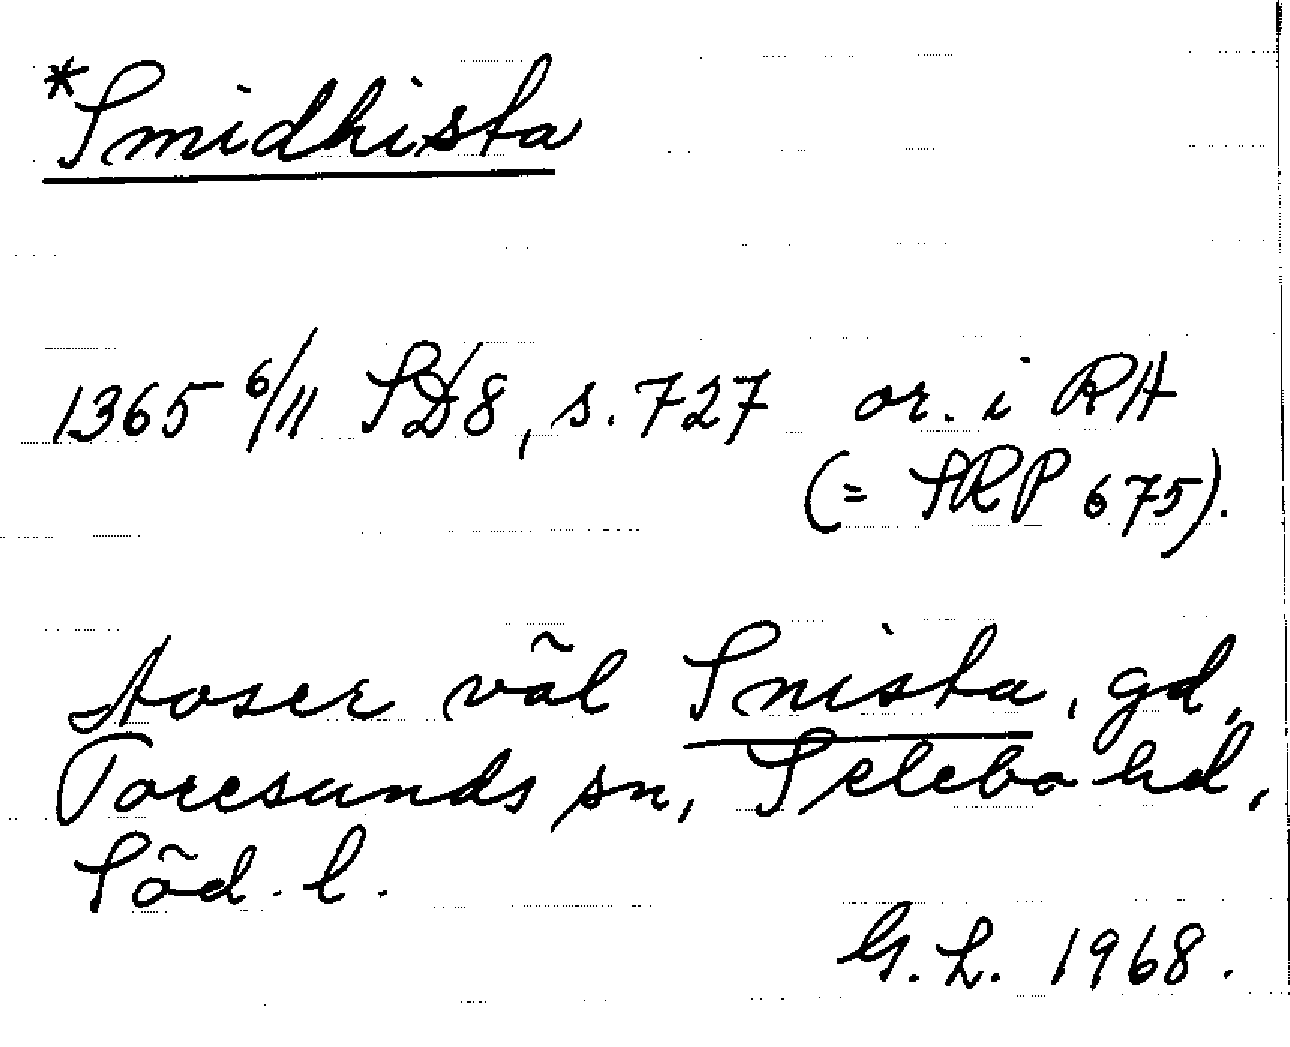 *Smidhista
1365 6/11 SD8, s. 727 or. i RA
(= SRP 675).
Avser väl Snista, gd,
Toresands sn, Selebo hd,
Söd. l.
G. L. 1968.